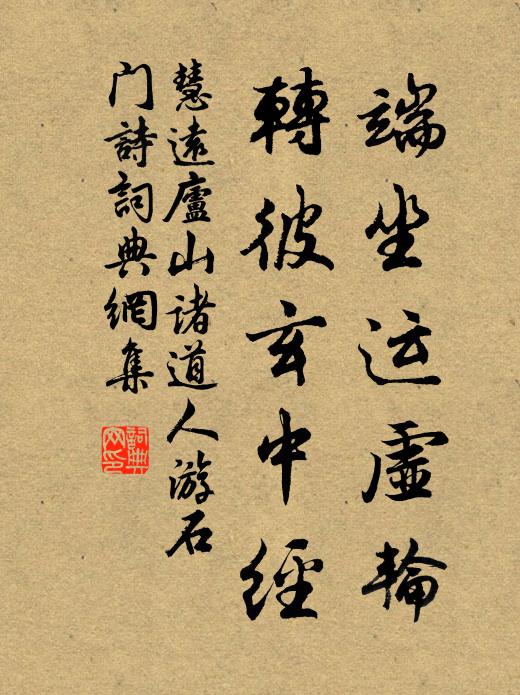 端坐运虛輪
轉彼玄中經
慧遠廬山諸道人游石
門詩詞典網集
詞典
网印